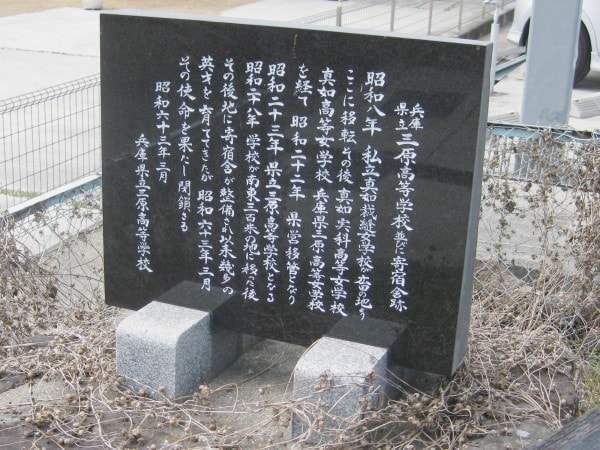 兵庫県立 三原高等学校 並びに 寄宿舎跡
昭和八年 私立真如裁縫女学校が當の地より
ここに移転 その後 真如実科高等女学校
真如高等女学校 兵庫県三原高等女学校
を経て 昭和二十二年 県営移管となり
昭和二十三年 県立三原高等学校となる
昭和二十八年 学校が南東三百米の地に移った後
その後地に寄宿舎が整備され以来幾多の
英才を育ててきたが 昭和六十三年三月
その使命を果たし閉鎖さる
昭和六十三年三月
兵庫県立三原高等学校